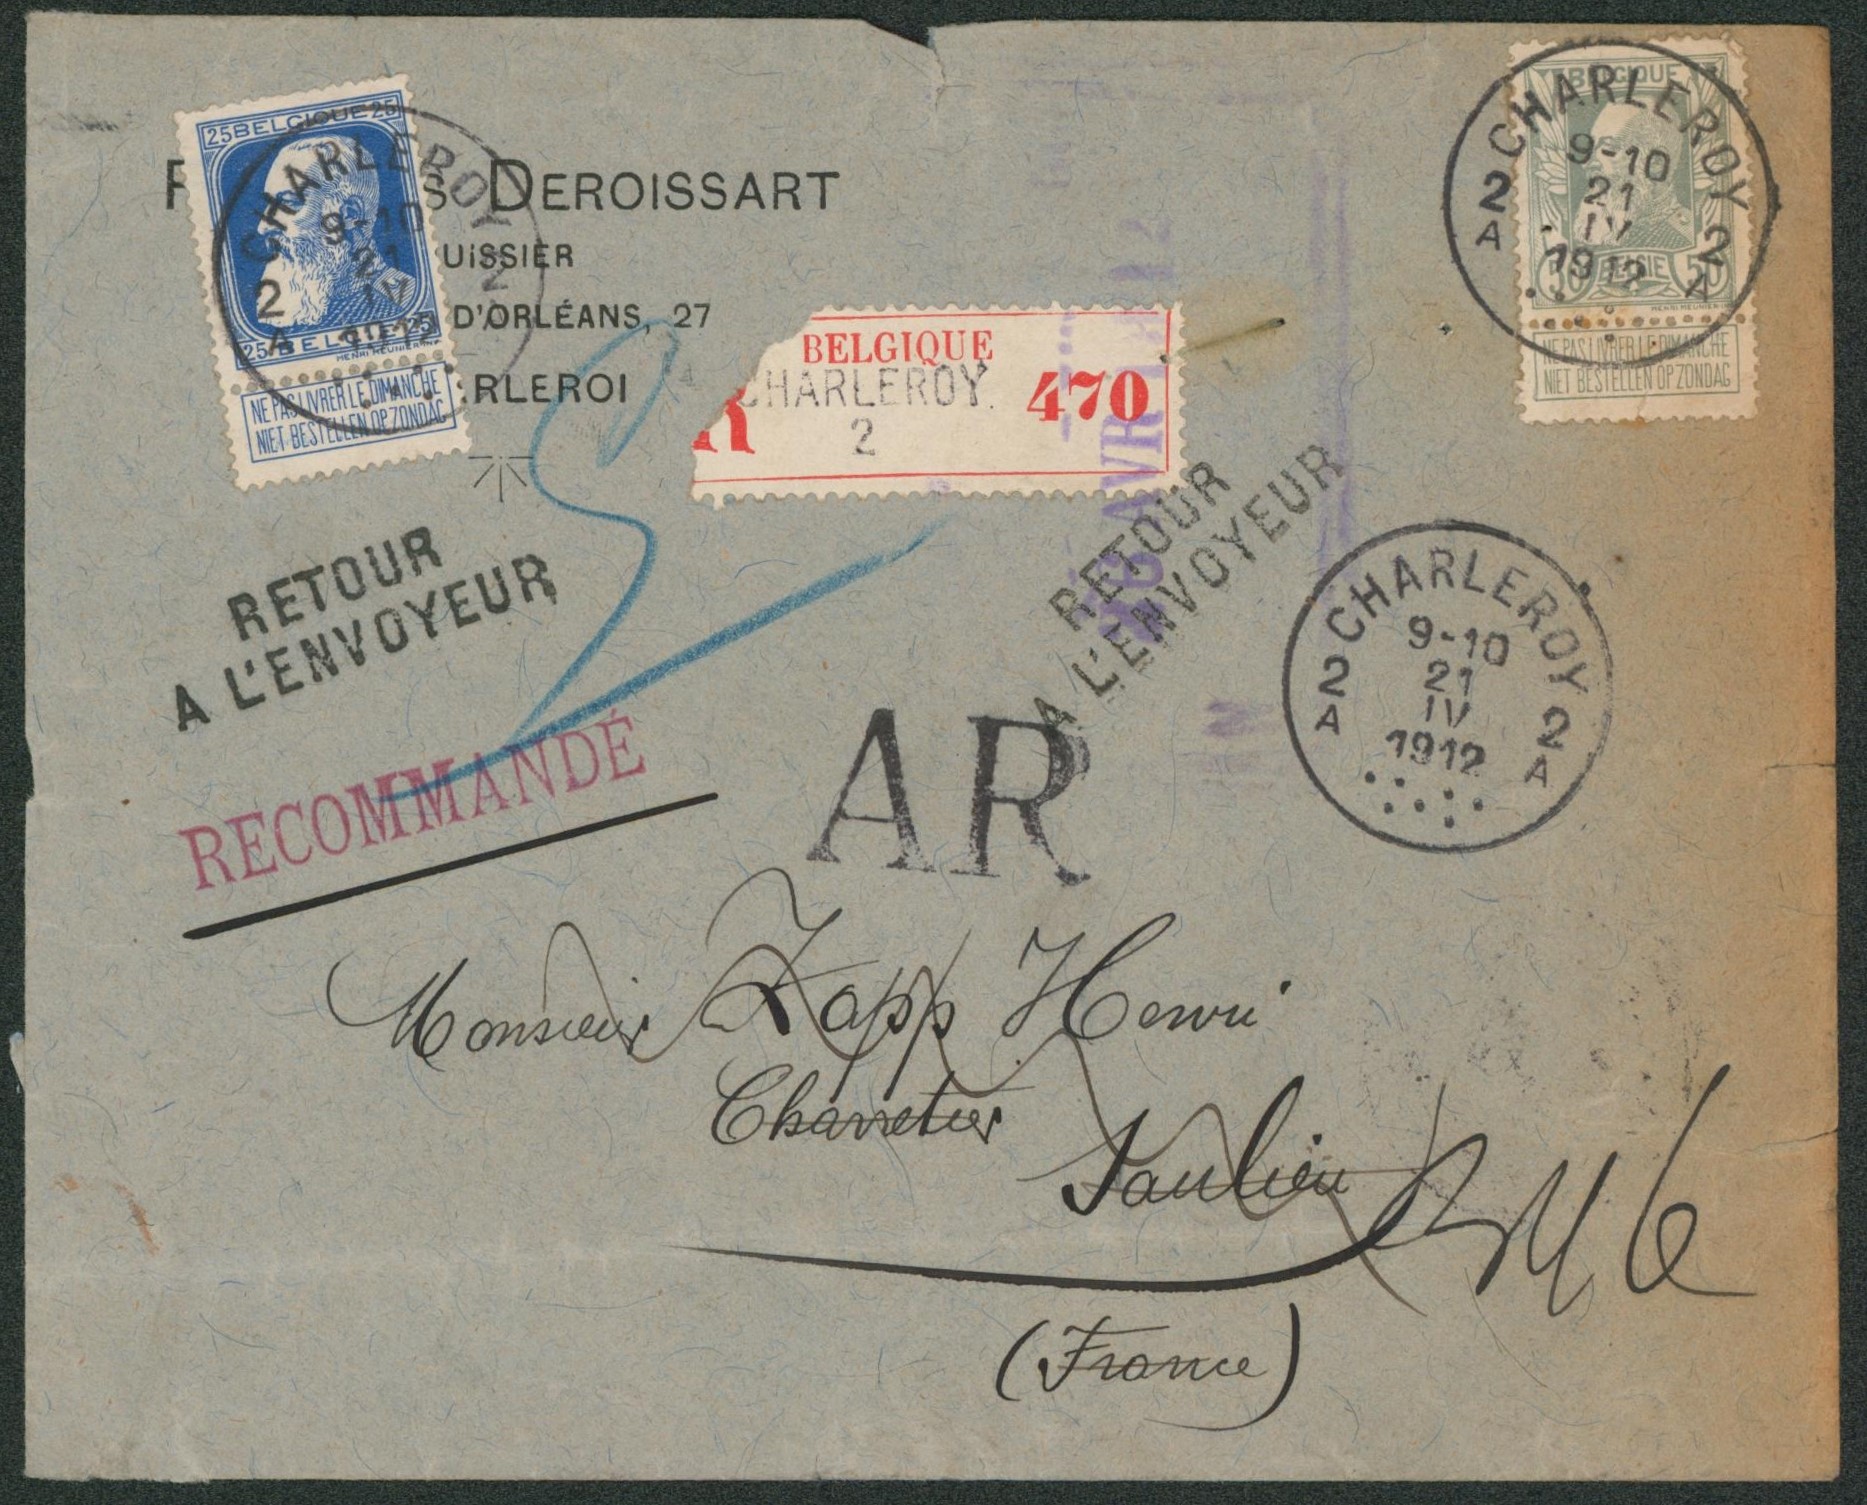 25 BELGIQUE 25
25 BELGIË 25
HENRI MEUNIER INV
NE PAS LIVRER LE DIMANCHE
NIET BESTELLEN OP ZONDAG
CHARLEROY
9-10
21
IV
1912
2 2
A
S DEROISSART
UISSIER
D'ORLÉANS, 27
RLEROI
BELGIQUE
R CHARLEROY 470
2
BELGIQUE
50 BELGIË 50
HENRI MEUNIER
NE PAS LIVRER LE DIMANCHE
NIET BESTELLEN OP ZONDAG
CHARLEROY
9-10
21
IV
1912
2 2
A A
AVRIL 12
RETOUR
A L'ENVOYEUR
RETOUR
A L'ENVOYEUR
CHARLEROY
9-10
21
IV
1912
2 2
A A
RECOMMANDÉ
AR
Monsieur Zapp Henri
Charretier
Saulieu
(France)